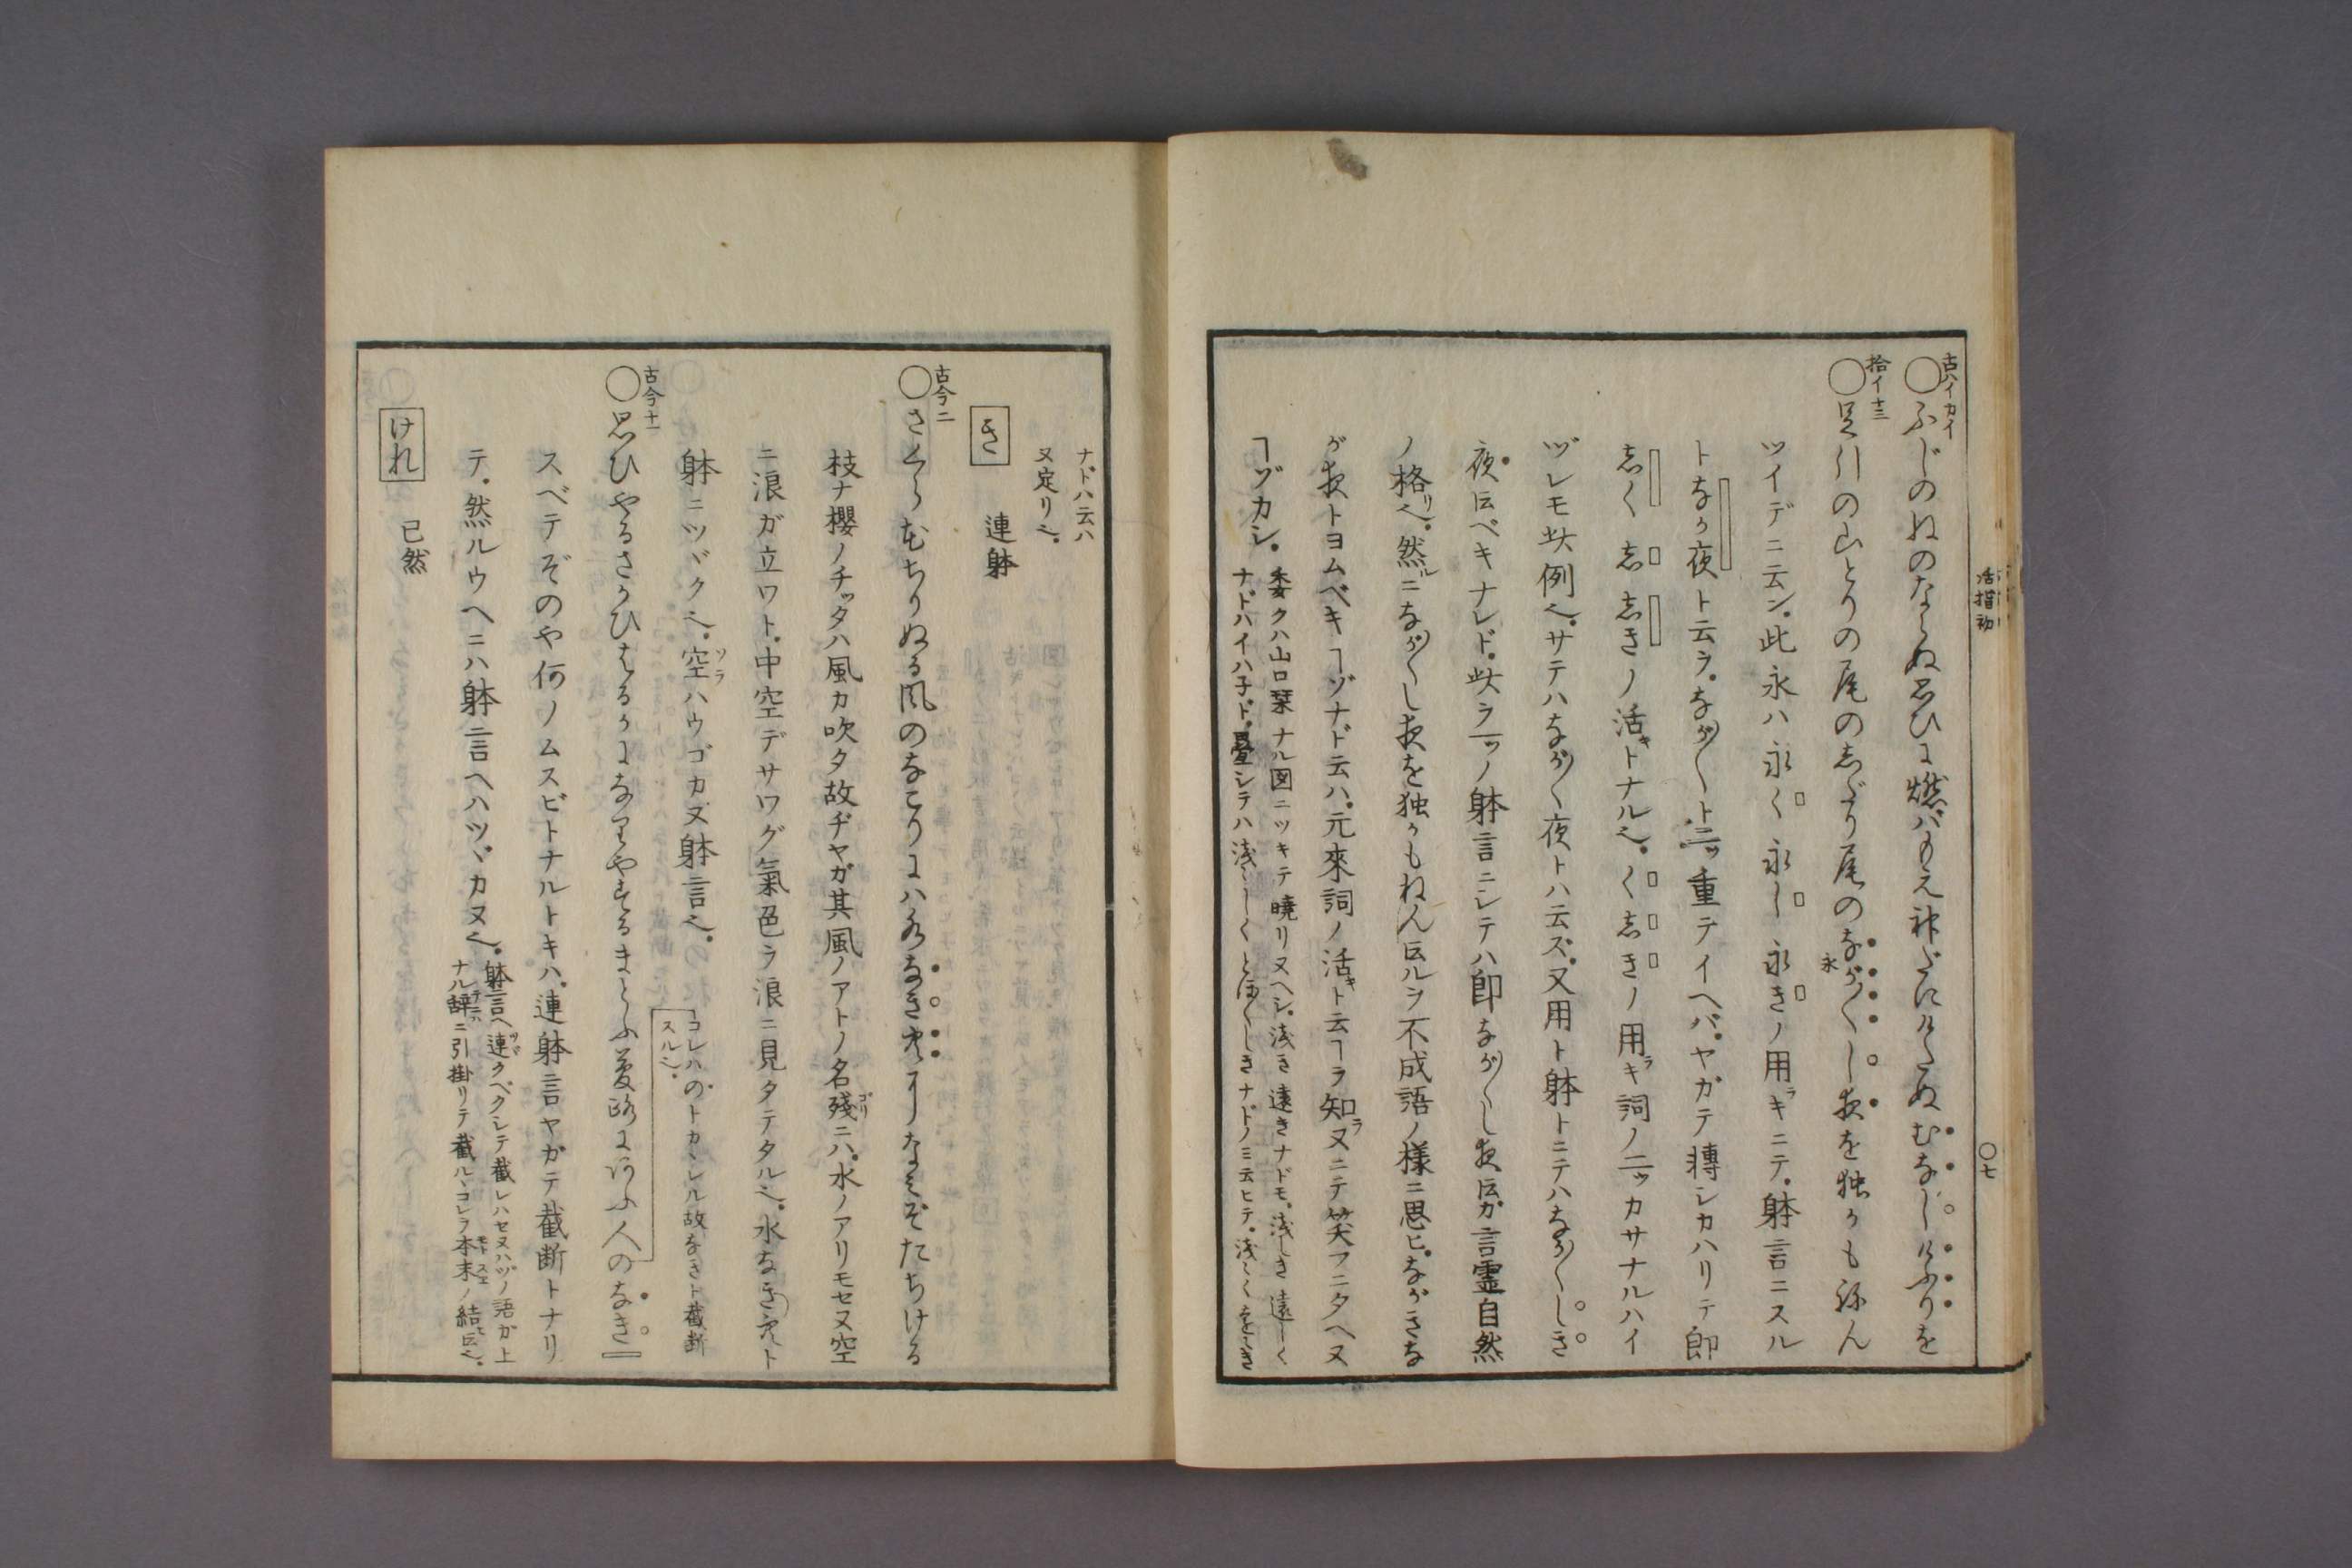 活指初
〇七
古ハイカイ
〇ふじのねのならぬ思ひに燃バもえ神だにけたぬむなしけふりを
拾イ十三
〇足引の山とりの尾のしだり尾のなが〱し夜を独かも祢ん
永
ツイデニ云ン。此永ハ永く永し永きノ用ラキニテ。躰言ニスル
トなか夜ト云ラ。なが〱ト二ッ重テイヘバ。ヤガテ轉シカハリテ即
志く志志きノ活キトナルヘ。く志きノ用ラキ詞ノ二ッカサナルハイ
ヅレモ此例ヘ。サテハなが〱夜トハ云ズ。又用ト躰トニテハなが〱しき
夜ト云ベキナレド。此ラ一ッノ躰言ニシテハ即なが〱し夜ト云カ言霊自然
ノ格リヘ。然ルニなが〱し夜を独かもねんト云ルヲ不成語ノ様ニ思ヒ。ながきな
が夜トヨムベキヿゾナド云ハ。元來詞ノ活キト云ヿラ知ラヌニテ笑フニタヘヌ
ヿゾカシ。
委クハ山口栞ナル図ニツキテ曉リヌヘシ。浅き遠きナドモ。浅しき遠〱しく
ナドハイハ子ド。疊シテハ浅〱しくとほ〱しきナドノミ云ヒテ。浅〱を〱き
ナドハ云ハ
ヌ定リヘ。
き 連躰
古今二
〇さくら花ちりぬる風のなこりにハ水なき空になみぞたちける
枝ナ櫻ノチッタハ風カ吹タ故ヂヤガ其風ノアトノ名殘ゴリニハ。水ノアリモセヌ空
ニ浪ガ立ワト。中空デサワグ氣色ラ浪ニ見タテタルヘ。水なき空ト
躰ニツヾクヘ。空ソラハウゴカヌ躰言ヘ。
コレハのトカヽレル故なきト截断
スルヘ。
古今十一
〇思ひやるさかひはるかになりやするまとふ夢路にあふ人のなき
スベテぞのや何ノムスビトナルトキハ。連躰言ヤガテ截断トナリ
テ。然ルウヘニハ躰言ヘハツヾカヌヘ。
躰言ヘ連ツヾクベクシテ截レハセヌハヅノ語カ上
ナル辞テニハニ引掛リテ截ルヽコレラ本末モトスエノ結ヒト云ヘ。
けれ 已然